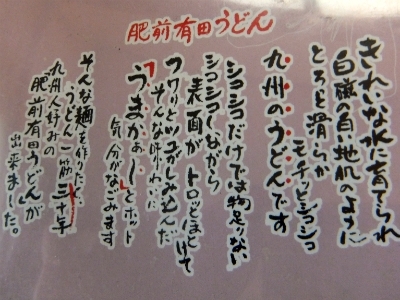 肥前有田うどん
きれいな水に育てられ
白磁の白地肌のように
とろっと滑らか
モチッとシコシコ
九州のうどんです
シコシコだけでは物足りない
シコシコしながら
表面がトロッとほどけて
フワリとツユがしみ込んだ
そんな味わいに
「うまかぁ〜」とホット
気分がなごみます
そんな麺を作りたく
うどん一筋三十年
九州人好みの
「肥前有田うどん」が
出来ました。